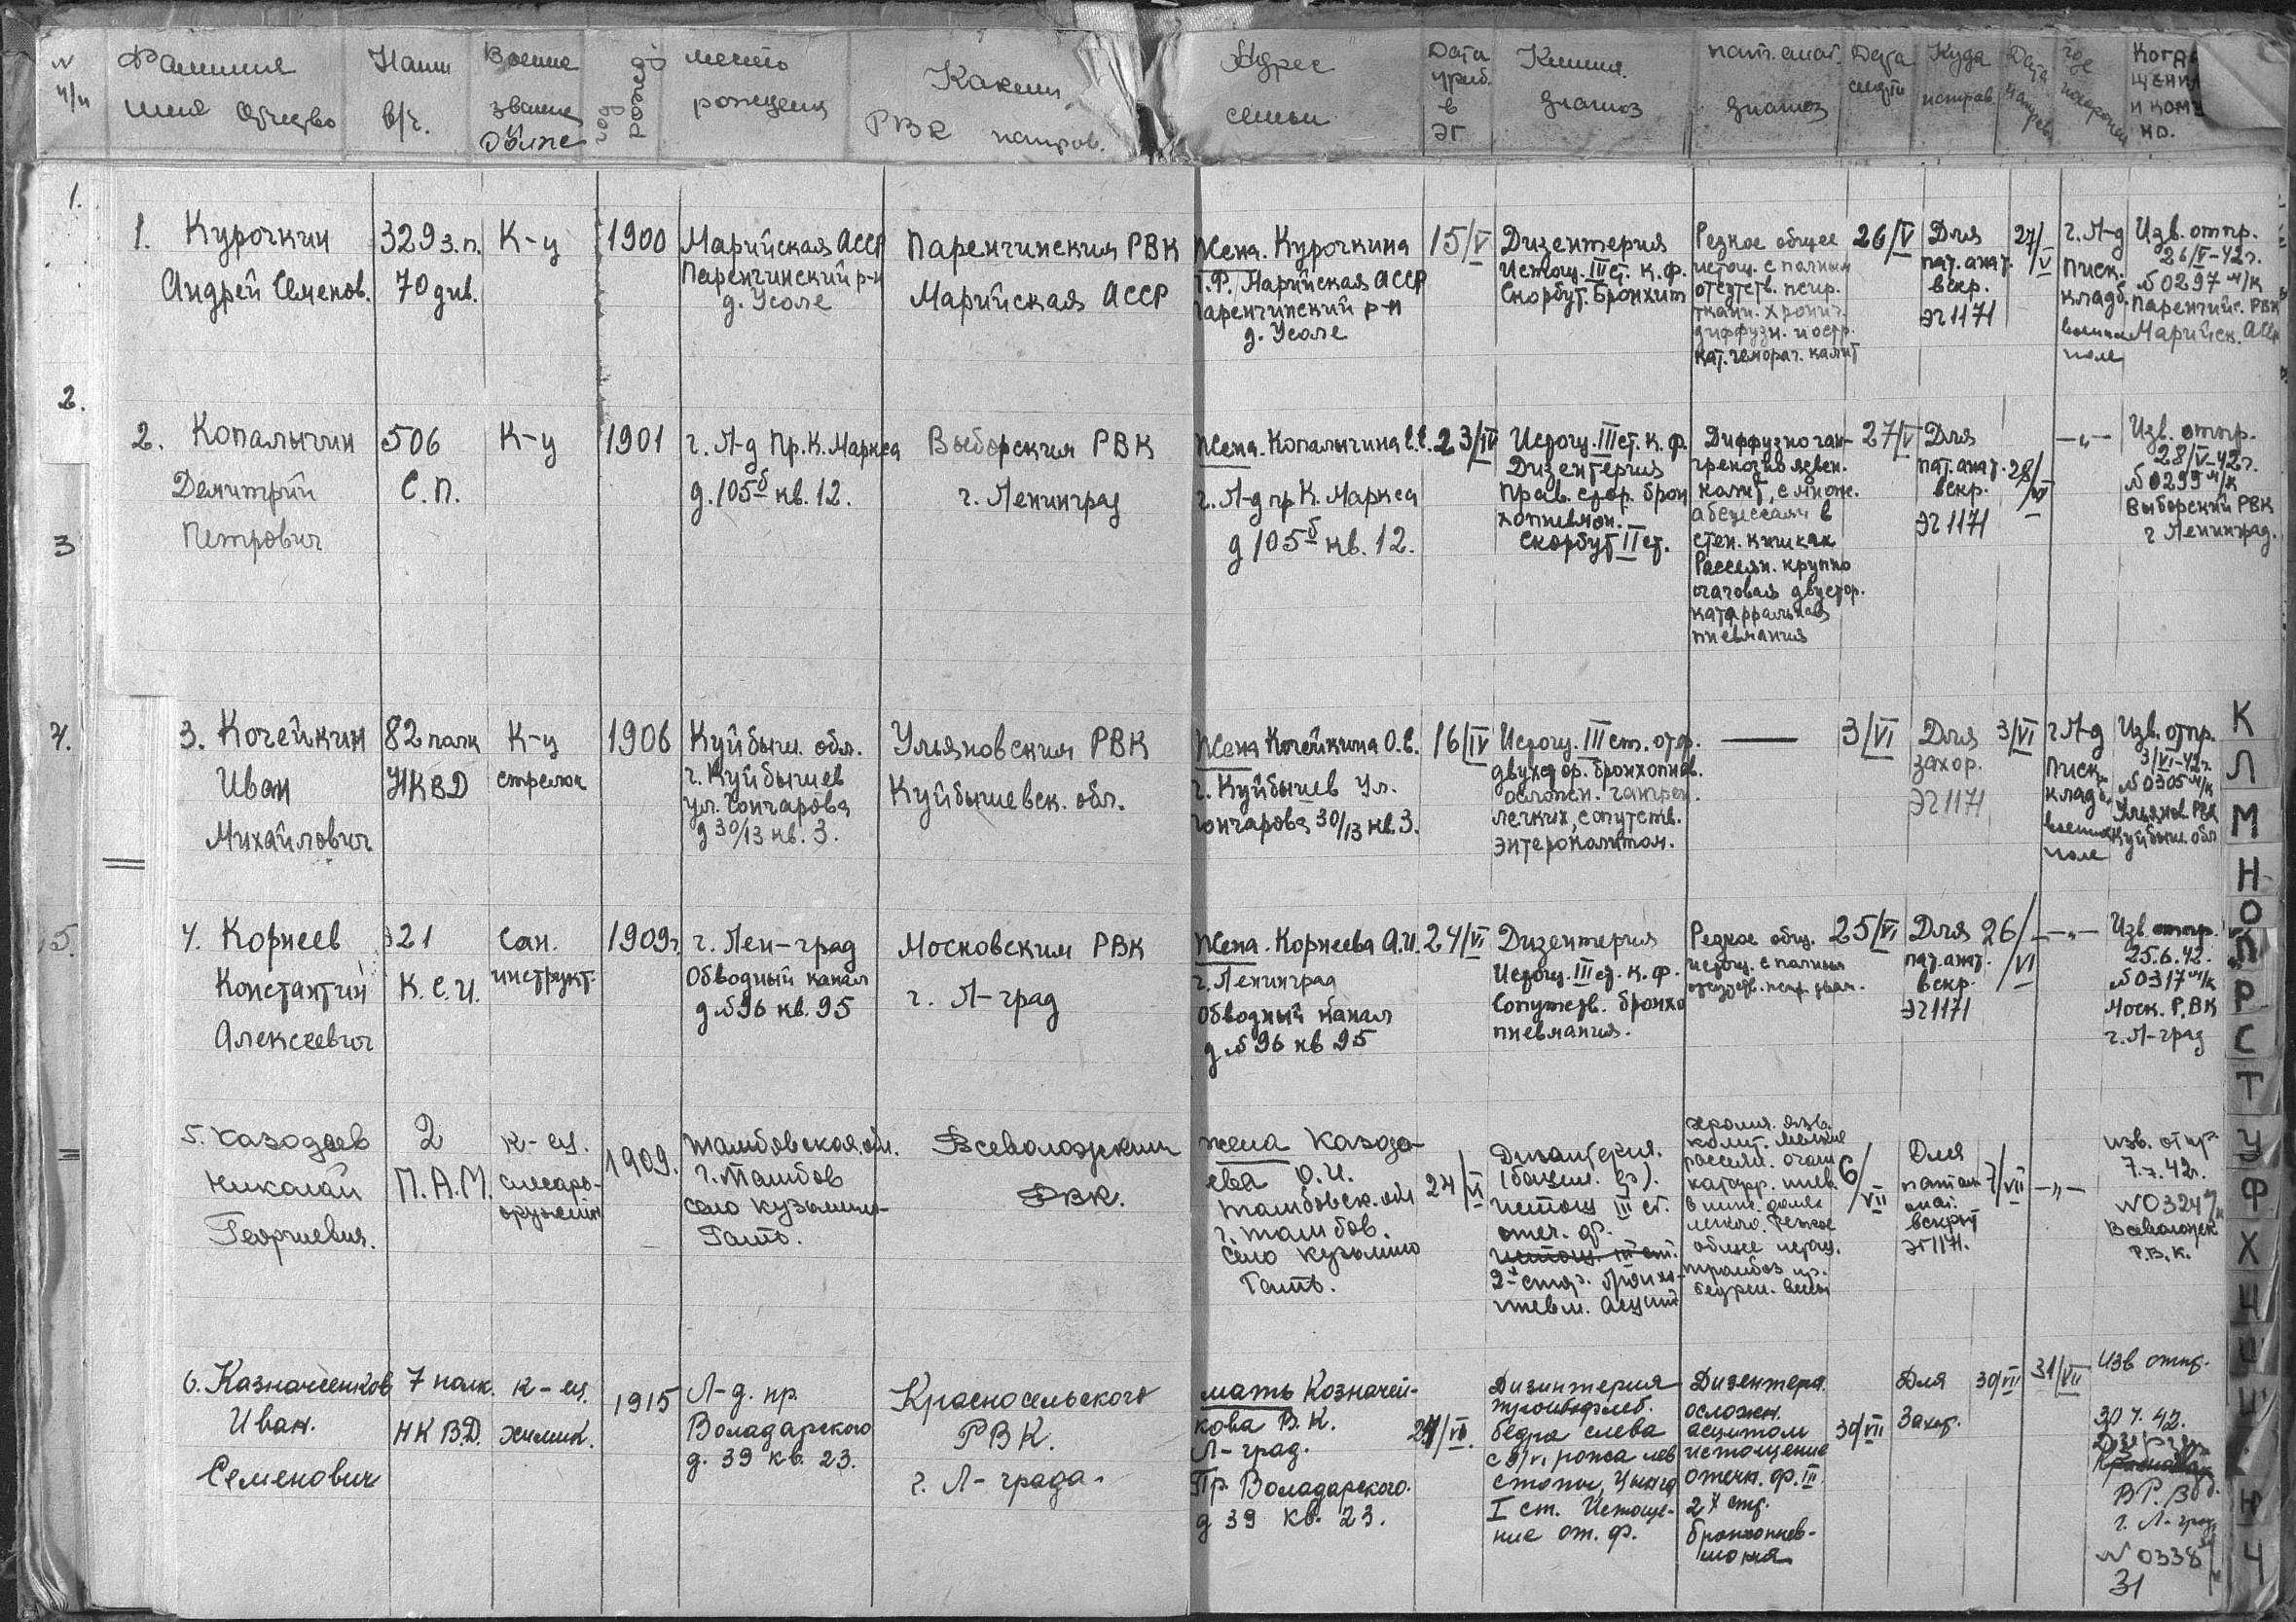 N п/п
Фамилия имя Отчество
Наим в/ч.
Военне звание
год рожд.
место рождения
Каким РВК направ.
Адрес семьи
Дата приб. в ЭГ.
Клинич. диагноз
пат. анат. диагноз
Дата смерти
Куда направ.
Дата
Когда
и кому
но.
1.
2.
3
4.
5.
1. Курочкин
Андрей Семенов.
329 з.п.
70 див.
К-ц
1900
Марийская АССР
Паренгинский р-н
д. Усоле
Паренгинским РВК
Марийская АССР
Жена. Курочкина
Т.Ф. Марийская АССР
Паренгинский р-н
д. Усоле
15/V
Дизентерия
Истощ. III ст. к. ф.
Скорбут. Бронхит
Резкое общее
истощ. с полным
отсутств. пспр.
ткани. хронич.
диффузн. и остр.
кат. гемораг. калит
26/V
Для
пат. анат.
вскр.
ЭГ 1171
27/V
г. Л-д
писк.
кладб.
военн
поле
Изв. отпр.
26/V-42г.
№ 0297 м/к
Паренгинс. РВК
Марийск. АССР
2. Копалычин
Демитрий
Петрович
506
С. П.
К-ц
1901
г. Л-д Пр. К. Маркса
д. 105б кв. 12.
Выборским РВК
г. Ленинград
Жена. Копалычина Е.Е.
г. Л-д пр К. Маркса
д 105б кв. 12.
23/IV
Истощ. III ст. к. ф.
Дизентерия
прав. стор. брон
хопневмон.
Скорбут II ст.
Диффузно ган-
гренозно язвен.
калит, с множ.
абсцессами в
стен. кишках
Рассеян. крупно
очаговая двустор.
катарральная
пневмания
27/V
Для
пат. анат.
вскр.
ЭГ 1171
28/VI
—"—
Изв. отпр.
28/V-42г.
№ 0299 м/к
Выборский РВК
г Ленинград.
3. Кочейкин
Иван
Михайлович
82 полк
НКВД
К-ц
стрелок
1906
Куйбыш. обл.
г. Куйбышев
ул. Гончарова
д 30/13 кв. 3.
Ульяновским РВК
Куйбышевск. обл.
Жена Кочейкина О.Е.
г. Куйбышев ул.
Гончарова 30/13 кв. 3.
16/IV
Истощ. III ст. от. ф.
двухстор. бронхопнев.
осложн. гангрен.
легких, сопутств.
энтероколитом.
—
3/VI
Для
захор.
ЭГ 1171
3/VI
г Л-д
писк.
кладб.
военн
поле
Изв. отпр.
3/VI-42г.
№ 0305 м/к
Ульянов. РВК
Куйбыш. обл
4. Корнеев
Константин
Алексеевич
321
К. С. И.
Сан.
инструкт.
1909г.
г. Лен-град
Обводный канал
д № 96 кв. 95
Московским РВК
г. Л-град
Жена. Корнеева А.И.
г. Ленинград
Обводный канал
д № 96 кв 95
24/VI
Дизентерия
Истощ. III ст. к. ф.
Сопутств. бронхо
пневмания.
Резкое общ.
истощ. с полным
отсутств. пспр. ткан.
25/VI
Для
пат. анат.
вскр.
ЭГ 1171
26/VI
—"—
Изв. отпр.
25.6.42.
№ 0317 м/к
Моск. РВК
г. Л-град
5. Казодаев
Николай
Георгиевич.
2
П.А.М.
к-ец.
слесарь-
оружейн
1909.
Тамбовская обл.
г. Тамбов
село Кузьмино-
Гать.
Всеволожским
РВК.
жена Казода-
ева О.И.
Тамбовск. обл
г. Тамбов.
Село Кузьмино
Гать.
24/VI
Дизентерия.
(бацил. гр).
истощ III ст.
отеч. ф.
истощ. III ст.
2х стор. бронхо-
пневм. асцит
хронич. язв.
колит. мелкие
рассеян. очаги
катарр. пнев.
в ниж. долях
легкого. Резкое
общее истощ.
тромбоз пр.
бедрен. вены
6/VII
Для
патол
анат.
вскрыт
ЭГ 1171.
7/VII
—"—
изв. отпр.
7.7.42г.
№ 0324 м/к
Всеволожск
Р.В.К.
6. Казначеенков
Иван.
Семенович
7 полк.
НКВД.
к-ец.
химик.
1915
Л-д. пр.
Воладарского
д. 39 кв. 23.
Красносельского
РВК.
г. Л-града.
мать Козначей-
кова В.К.
Л-град.
Пр. Воладарского.
д 39 кв. 23.
24/VI.
Дизинтерия
тромбофлеб.
бедра слева
с 9/VI рожа лев
стопы, Цынга
I ст. Истоще-
ние от. ф.
Дизентера.
осложн.
асцитом
истощение
отечн. ф. III
2х стр.
бронхопнев-
мония
30/VII
Для
Захор.
30/VII
31/VII
Изв отпр.
30 7. 42.
г. Л-град
№ 0338
31
К
Л
М
Н
О
П
Р
С
Т
У
Ф
Х
Ц
Ч